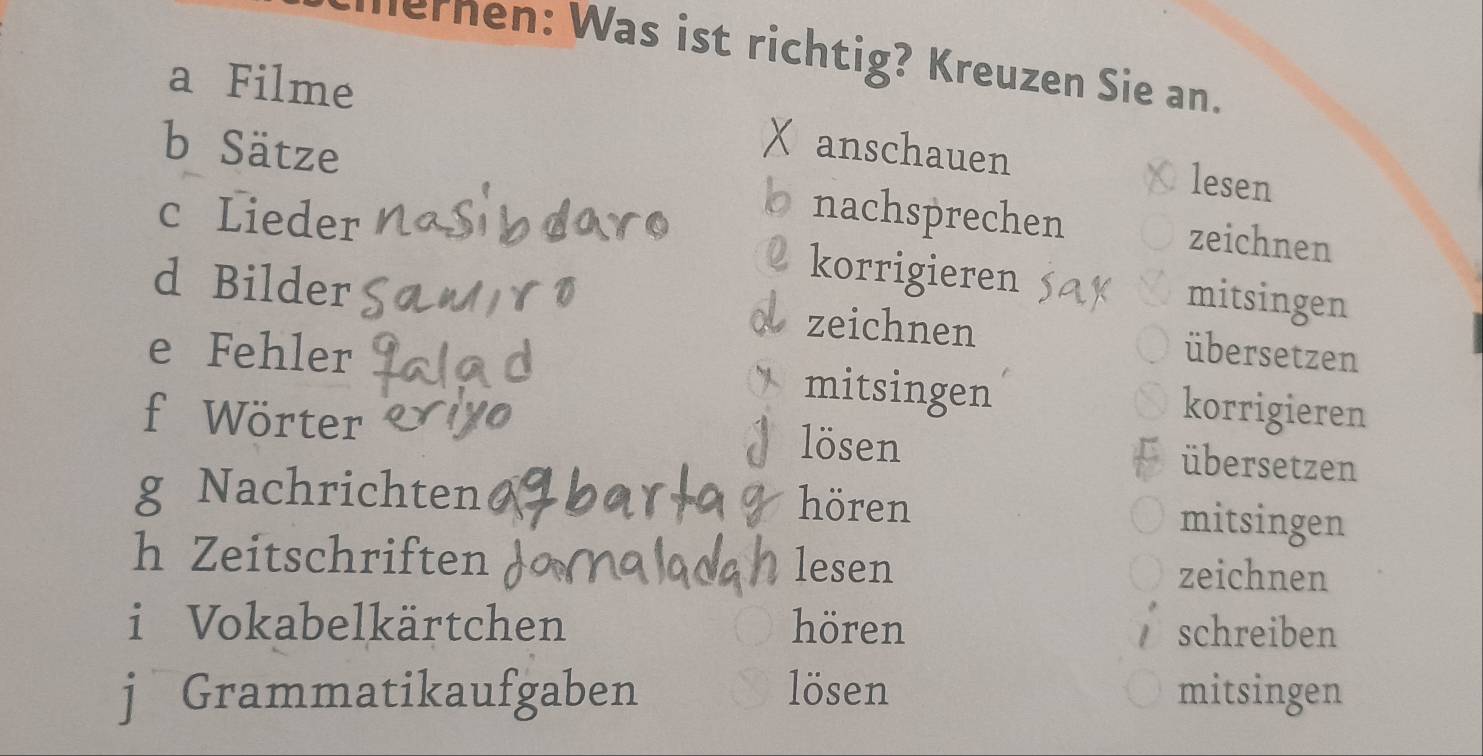 Was ist richtig? Kreuzen Sie an.
a Filme X anschauen X lesen
b Sätze b nachsprechen zeichnen
c Lieder nasibdaro e korrigieren sax mitsingen
d Bilder Samiro d zeichnen übersetzen
e Fehler galad x mitsingen korrigieren
f Wörter eriyo j lösen F übersetzen
g Nachrichten agbartag g hören mitsingen
h Zeitschriften jarnaladah h lesen zeichnen
i Vokabelkärtchen hören i schreiben
j Grammatikaufgaben lösen mitsingen